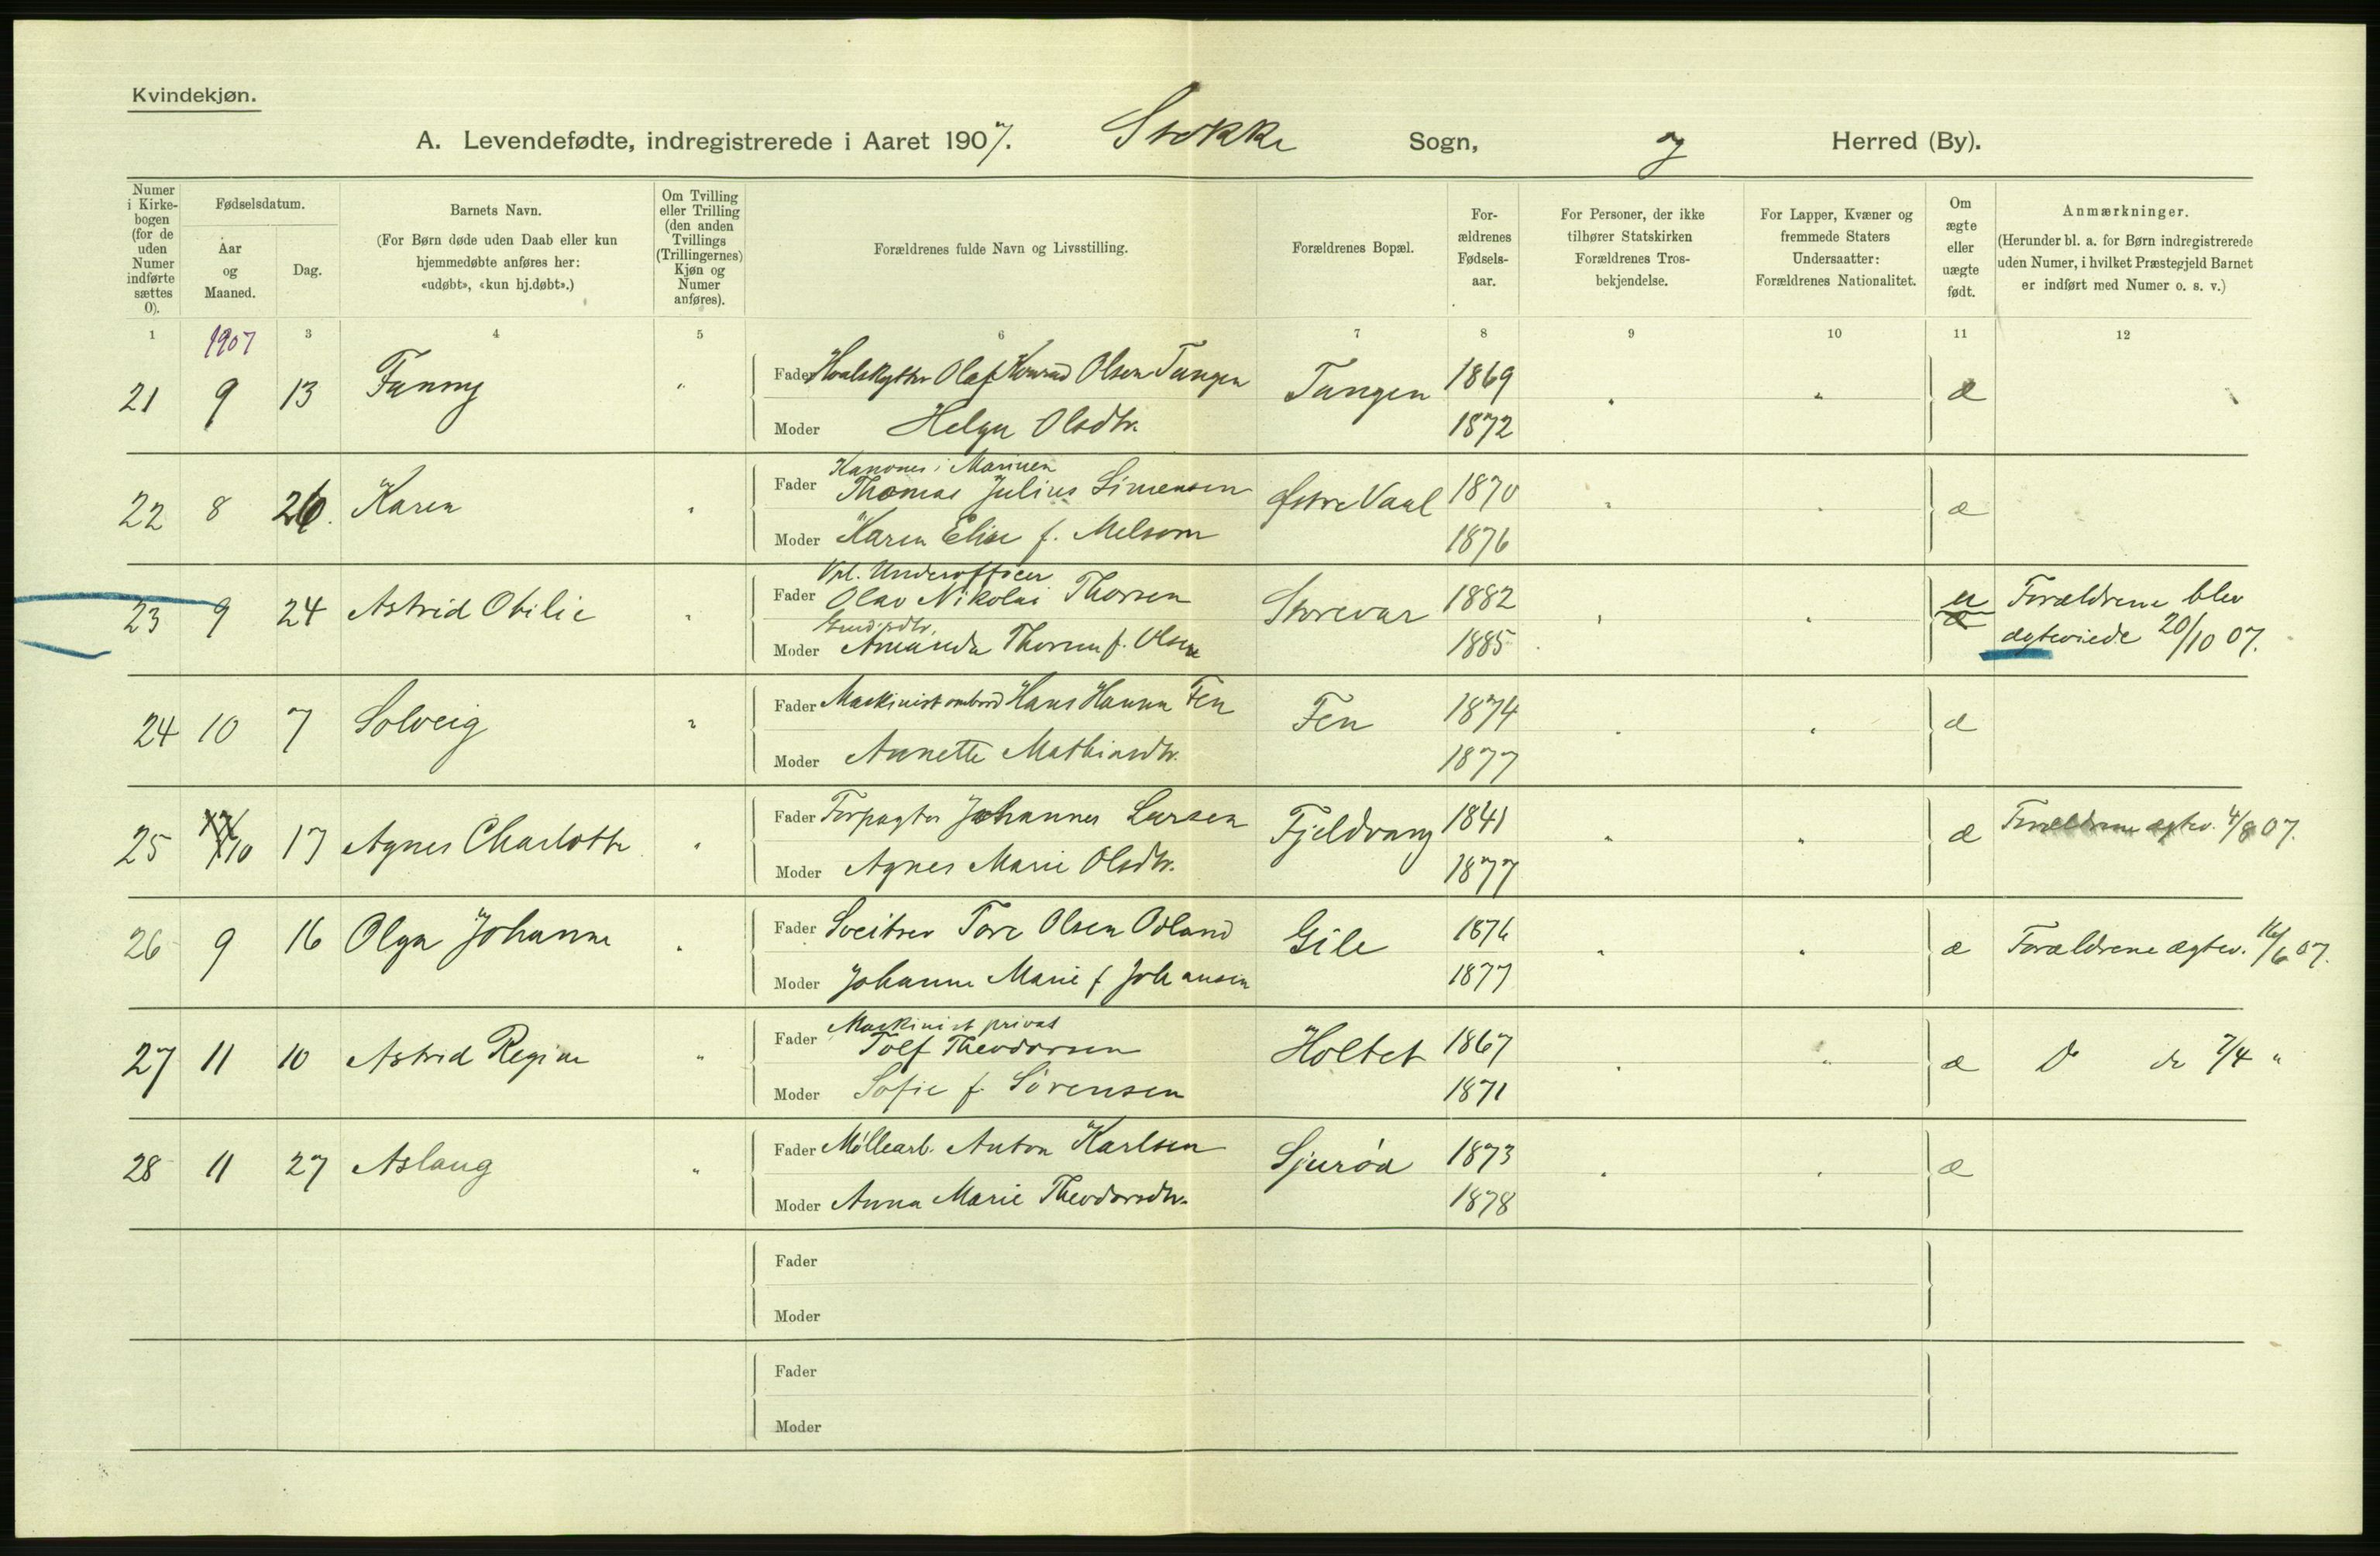 Kvindekjøn.
A. Levendefødte, indregistrerede i Aaret 1907. Stokke Sogn, og Herred (By).
Numer i Kirke-bogen (for de uden Numer indførte sættes 0).
Fødselsdatum.
Aar og Maaned.
Dag.
Barnets Navn.
(For Børn døde uden Daab eller kun hjemmedøbte anføres her: «udøbt», «kun hj.døbt».)
Om Tvilling eller Trilling (den anden Tvillings (Trillingernes) Kjøn og Numer anføres).
Forældrenes fulde Navn og Livsstilling.
Forældrenes Bopæl.
For-ældrenes Fødsels-aar.
For Personer, der ikke tilhører Statskirken Forældrenes Tros-bekjendelse.
For Lapper, Kvæner og fremmede Staters Undersaatter: Forældrenes Nationalitet.
Om ægte eller uægte født.
Anmærkninger.
(Herunder bl. a. for Børn indregistrerede uden Numer, i hvilket Præstegjeld Barnet er indført med Numer o. s. v.)
1 3 4 5 6 7 8 9 10 11 12
1907
21 9 13 Fanny " Fader Hvalskytter Olaf Konrad Olsen Tangen Tangen 1869 " " æ
Moder Helga Olsdtr. 1872
Kanoner i Marinen
22 8 26. Karen " Fader Thomas Julius Simensen Østre Vaal 1870 " " æ
Moder Karen Elise f. Melsom 1876
Vpl. Underofficer
23 9 24 Astrid Otilie " Fader Olav Nikolai Thorsen Storevar 1882 " " u Forældrene blev
Moder Amanda Thorsen f. Olsen 1885 ægteviede 20/10 07.
24 10 7 Solveig " Fader Maskinist ombord Hans Hansen Fen Fen 1874 " " æ
Moder Annette Mathiasdtr. 1877
25 10 17 Agnes Charlotte " Fader Forpagter Johannes Larsen Fjeldvang 1841 " " æ Forældrene ægtev. 4/8 07.
Moder Agnes Marie Olsdtr. 1877
26 9 16 Olga Johanne " Fader Sveitser Tore Olsen Odland Gile 1876 " " æ Forældrene ægtev. 16/6 07.
Moder Johanne Marie f Johansen 1877
Maskinist privat
27 11 10 Astrid Regine " Fader Tolf Theodorsen Holtet 1867 " " æ Do do 7/4 "
Moder Sofie f. Sørensen 1871
28 11 27 Aslaug " Fader Møllearb. Anton Karlsen Sjurød 1873 " " æ
Moder Anna Marie Theodorsdtr. 1878
Fader
Moder
Fader
Moder